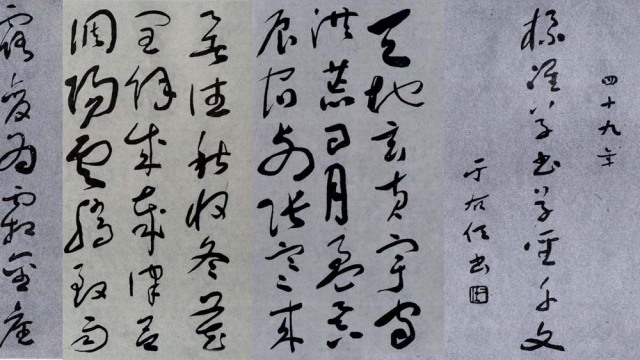 四十九年
標準草書草聖千文
于右任書
天地玄黃宇宙
洪荒日月盈昃
辰宿列張寒來
暑往秋收冬藏
閏餘成歲律呂
調陽雲騰致雨
露結為霜金生